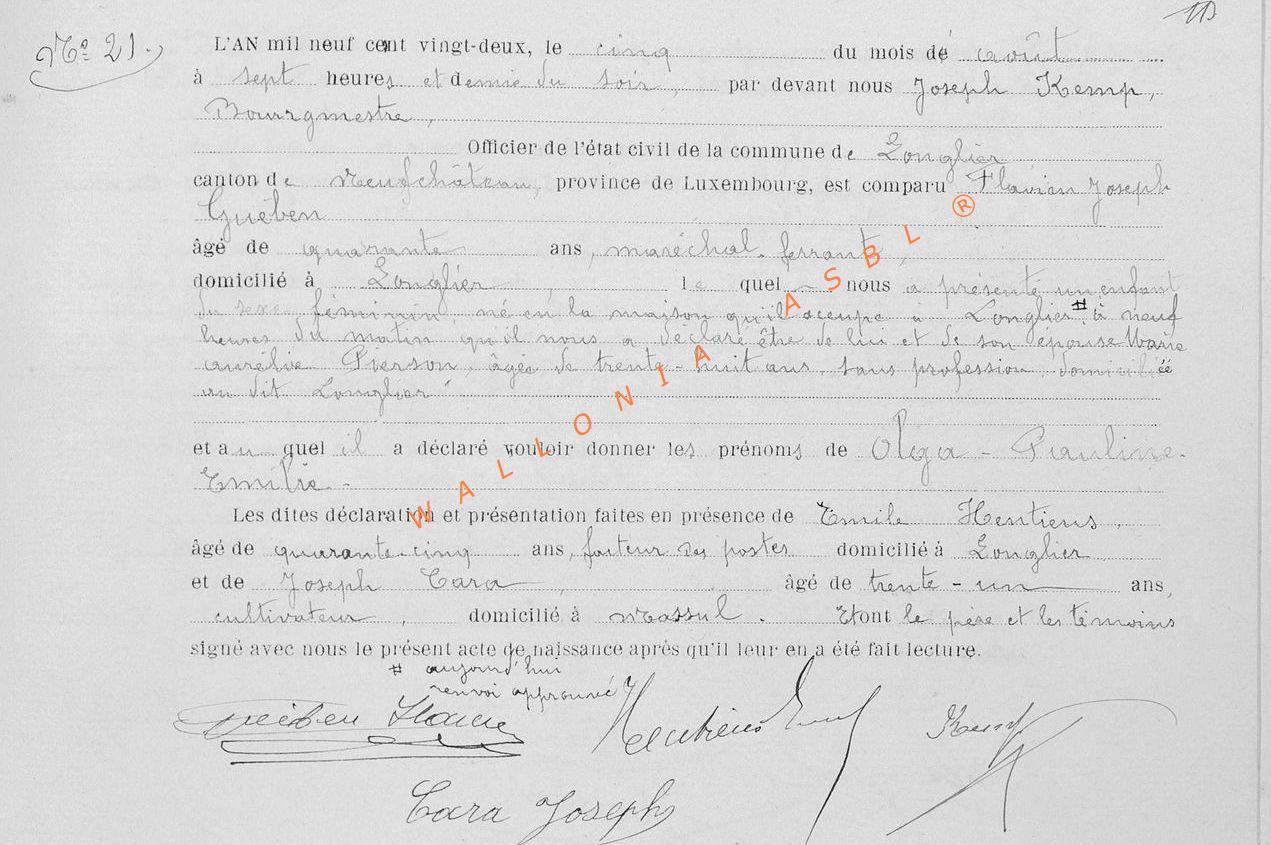 Nº 21.
L'AN mil neuf cent vingt-deux, le cinq du mois de août
à sept heures et demie du soir, par devant nous Joseph Kemp,
Bourgmestre,
Officier de l'état civil de la commune de Longlier
canton de Neufchâteau, province de Luxembourg, est comparu Flavien Joseph
Guében
âgé de quarante ans, maréchal-ferrant,
domicilié à Longlier, le quel nous a présenté un enfant
du sexe féminin, né en la maison qu'il occupe à Longlier # à neuf
heures du matin qu'il nous a déclaré être de lui et de son épouse Marie
Aurélie Pierson, âgée de trente-huit ans, sans profession, domiciliée
au dit Longlier
et au quel il a déclaré vouloir donner les prénoms de Olga - Pauline -
Emilie -
Les dites déclaration et présentation faites en présence de Emile Hentiens,
âgé de quarante-cinq ans, facteur des postes domicilié à Longlier
et de Joseph Cara, âgé de trente-un ans,
cultivateur, domicilié à Massul. Et ont le père et les témoins
signé avec nous le présent acte de naissance après qu'il leur en a été fait lecture.
# aujourd'hui
renvoi approuvé
Guében Flavien Hentiens Emile Kemp
Cara Joseph
WALLONIA ASBL ®